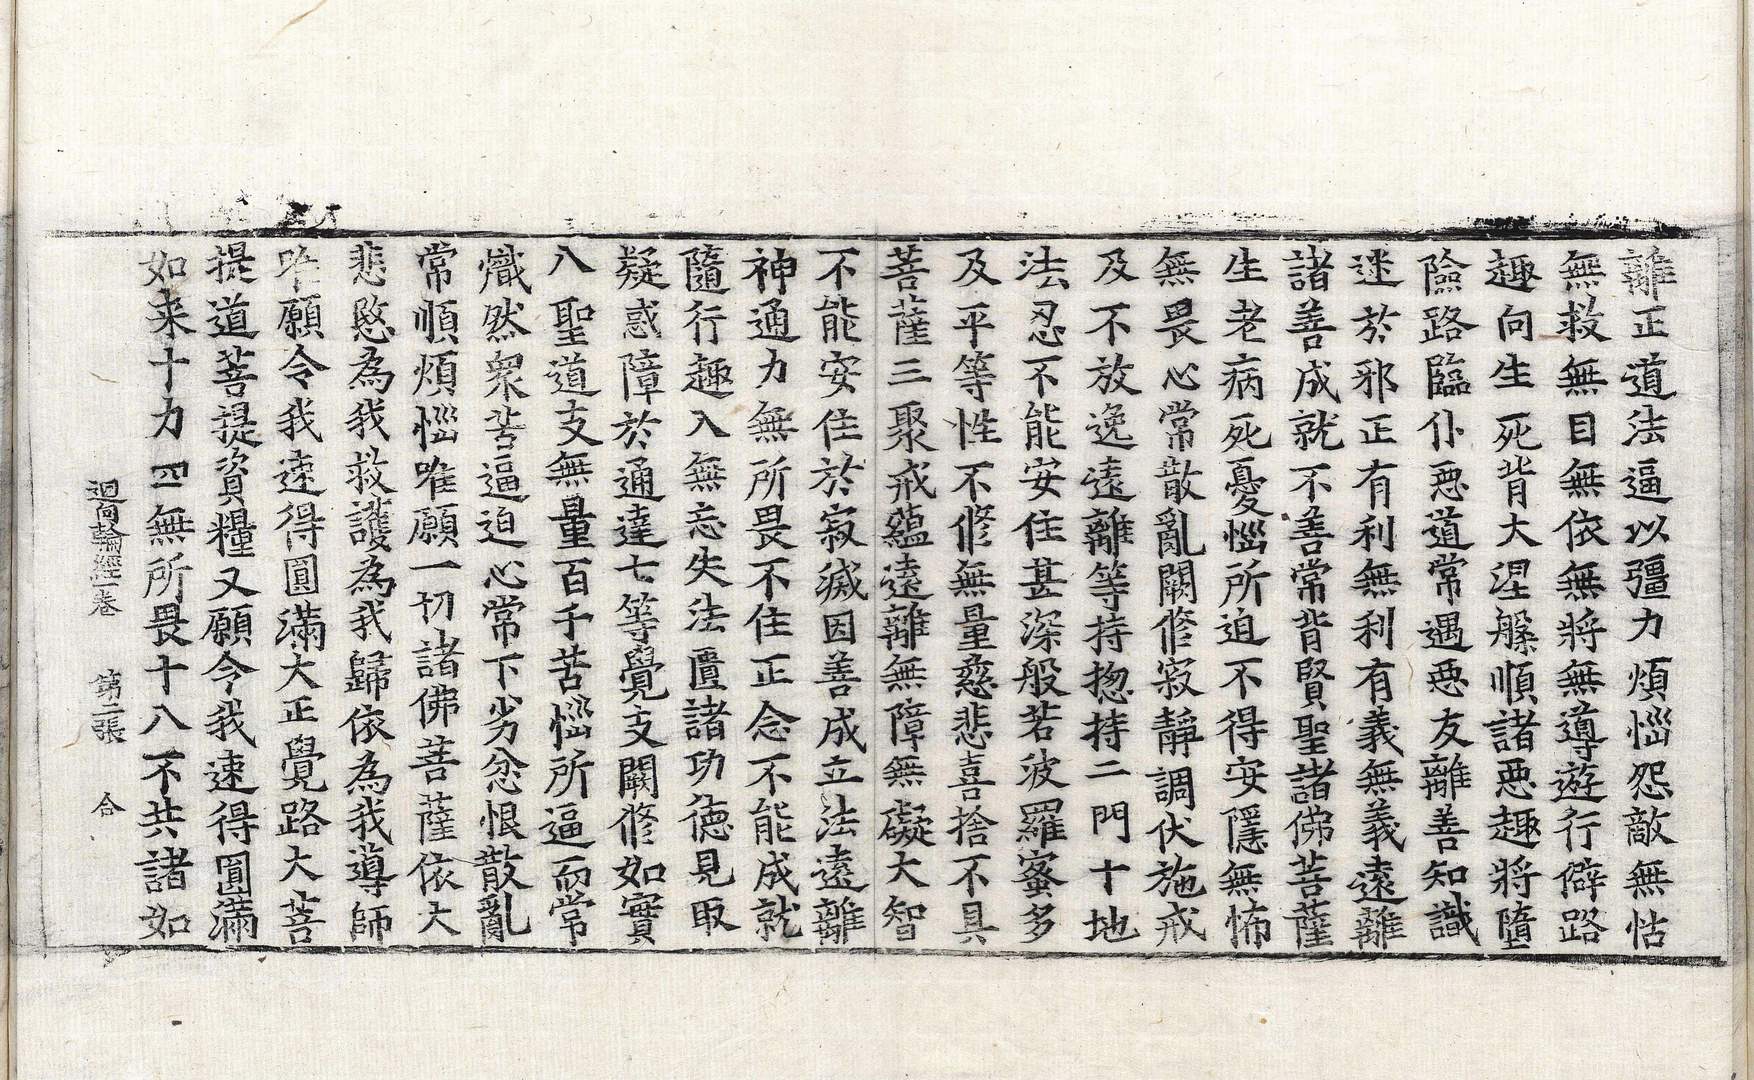 離正道法逼以彊力煩惱怨敵無怙
無救無目無依無將無導遊行僻路
趣向生死背大涅槃順諸惡趣將墮
險路臨仆惡道常遇惡友離善知識
迷於邪正有利無利有義無義遠離
諸善成就不善常背賢聖諸佛菩薩
生老病死憂惱所迫不得安隱無怖
無畏心常散亂闕修寂靜調伏施戒
及不放逸遠離等持揔持二門十地
法忍不能安住甚深般若波羅蜜多
及平等性不修無量慈悲喜捨不具
菩薩三聚戒蘊遠離無障無礙大智
不能安住於寂滅因善成立法遠離
神通力無所畏不住正念不能成就
隨行趣入無忘失法匱諸功德見取
疑惑障於通達七等覺支闕修如實
八聖道支無量百千苦惱所逼而常
熾然衆苦逼迫心常下劣忿恨散亂
常順煩惱唯願一切諸佛菩薩依大
悲愍為我救護為我歸依為我導師
唯願令我速得圓滿大正覺路大菩
提道菩提資糧又願令我速得圓滿
如来十力四無所畏十八不共諸如
迴向輪經一卷 第二張 合